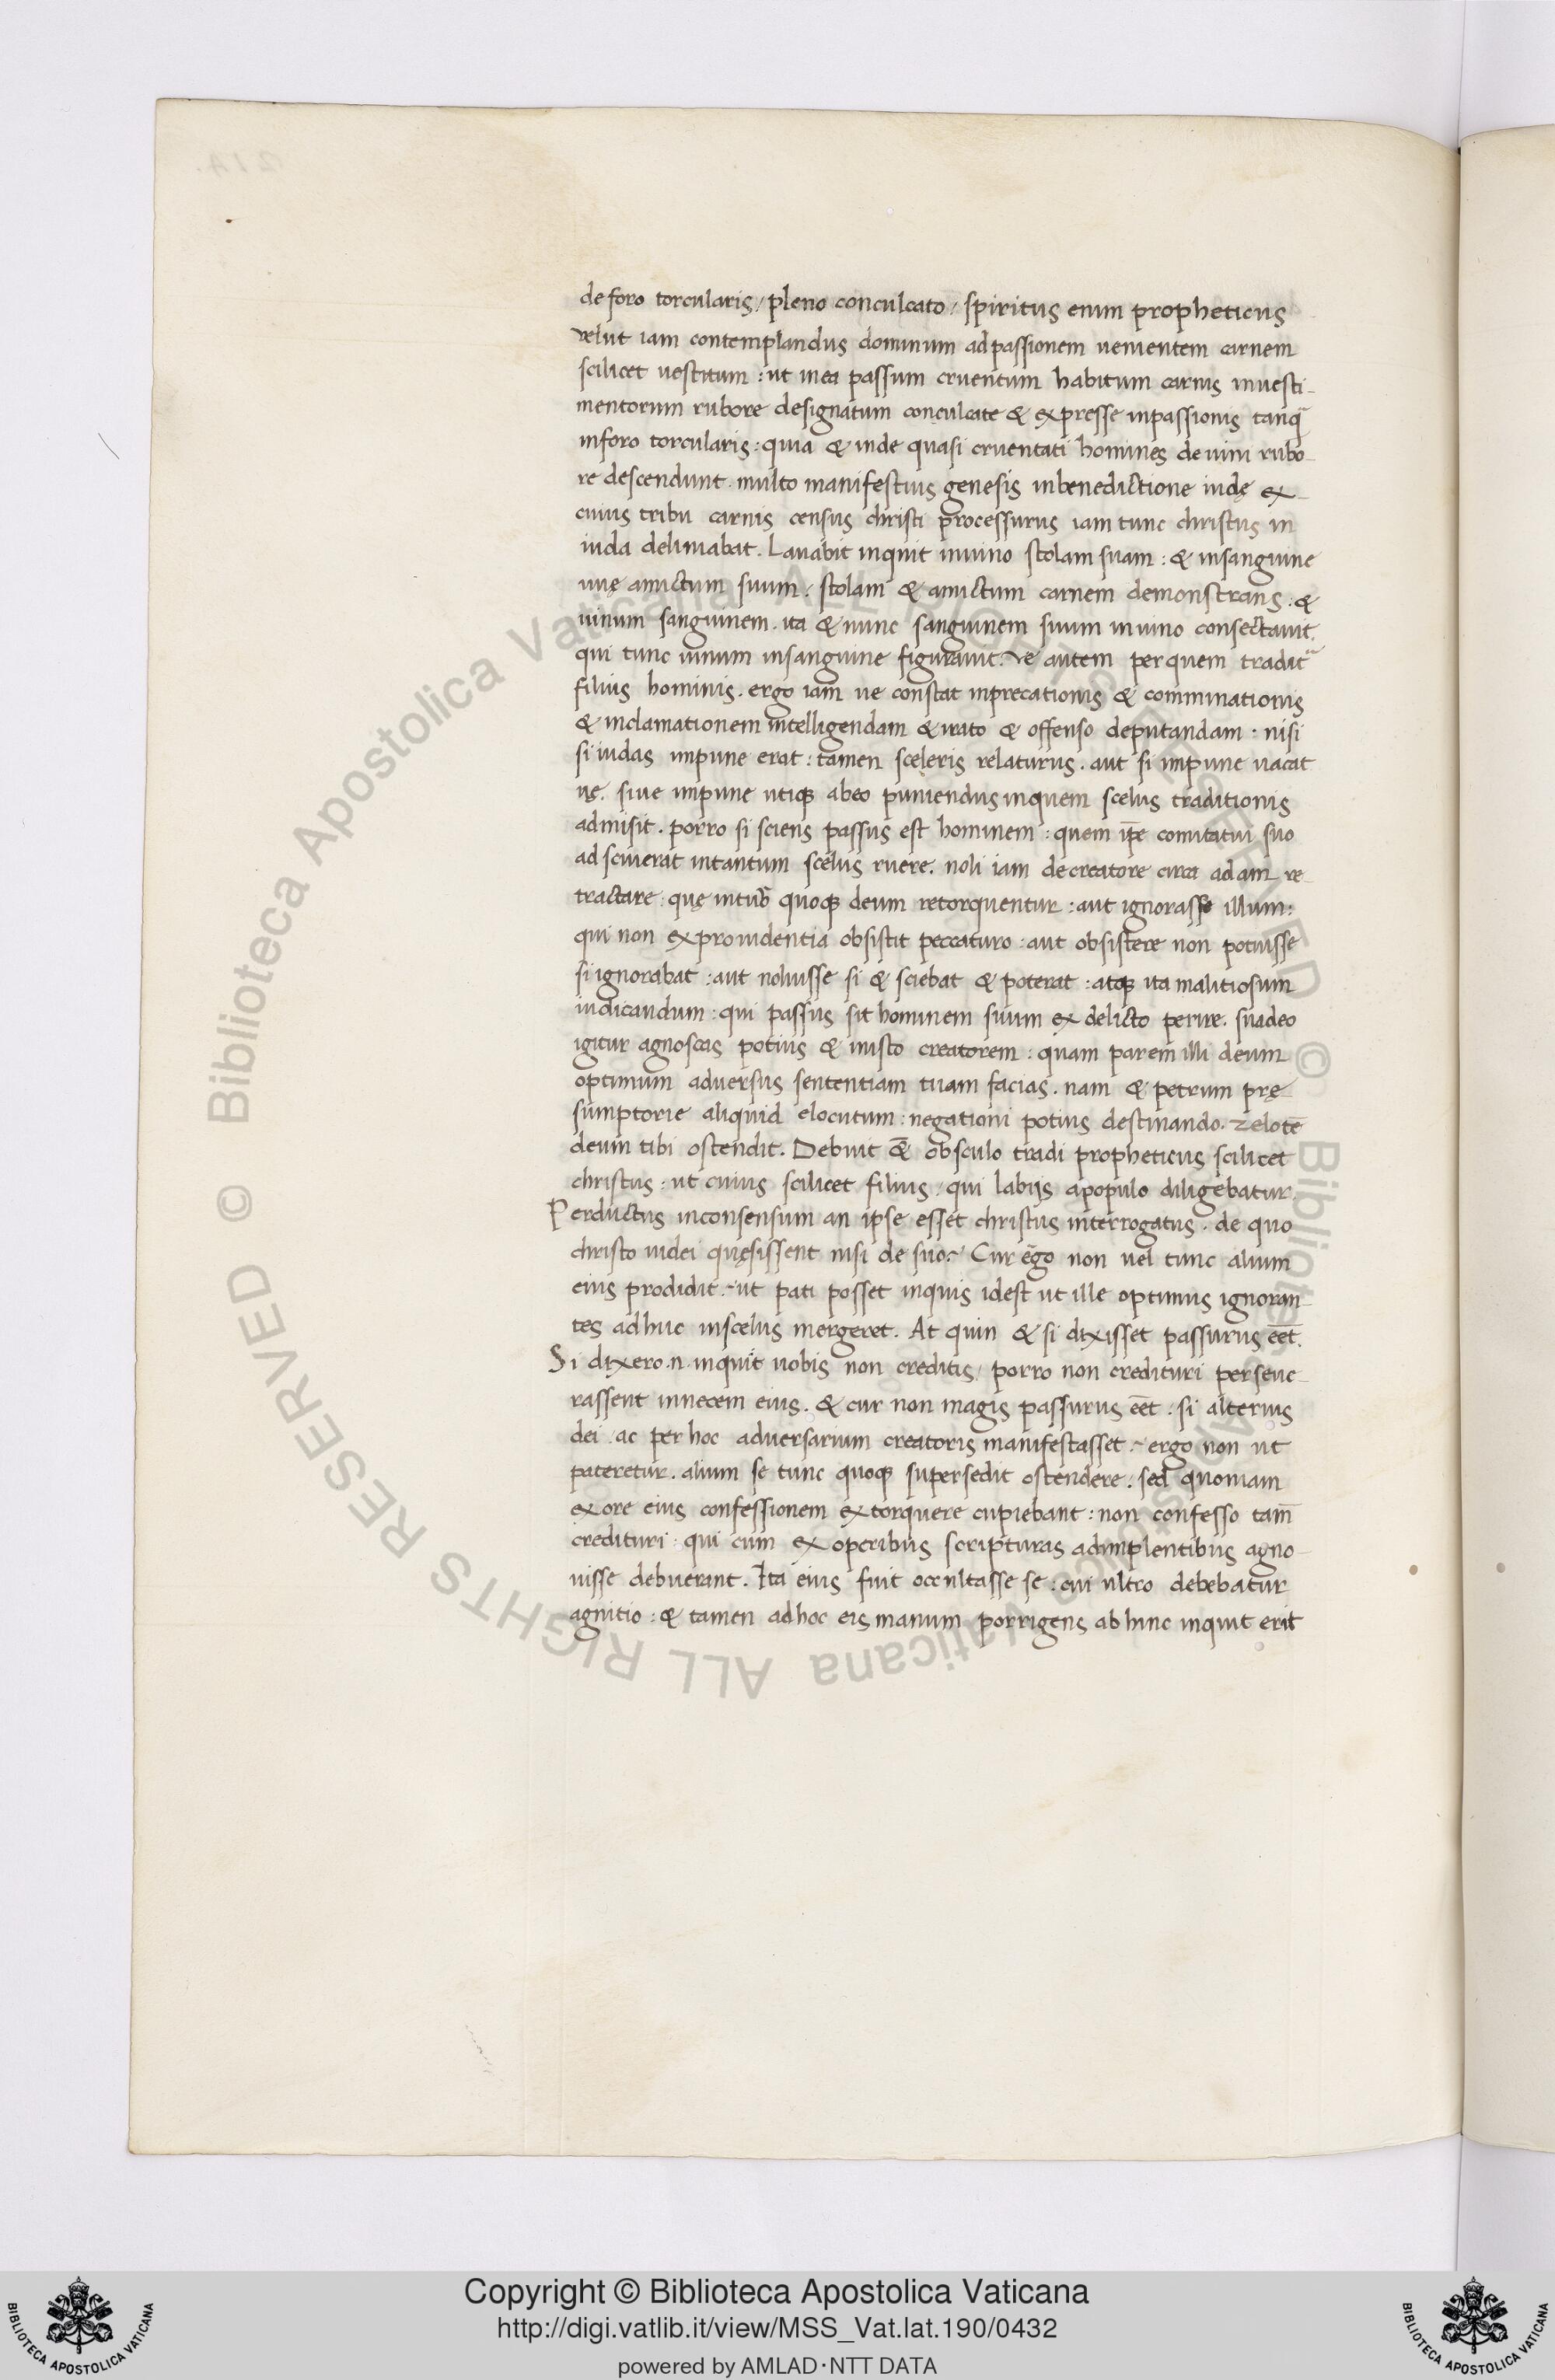 de foro torcularis / pleno conculcato / spiritus enim propheticus
velut iam contemplandus dominum ad passionem uenientem carnem
scilicet uestitum : ut inea passum cruentum habitum carnis inuesti-
mentorum rubore designatum conculcate & expresse inpassionis tanq̄
inforo torcularis : quia & inde quasi cruentati homines de uini rubo-
re descendunt . multo manifestius genesis inbenedictione iudę ex-
cuius tribu carnis census christi processurus iam tunc christus in
iuda deliniabat . Lauabit inquit inuino stolam suam : & insanguine
uuę amictum suum . stolam & amictum carnem demonstrans . &
uinum sanguinem . ita & nunc sanguinem suum inuino consectauit.
qui tunc uinum insanguine figurauit . Ve autem per quem tradit᷑
filius hominis . ergo iam ue constat inprecationis & comminationis
& inclamationem intelligendam & irato & offenso deputandam . nisi
si iudas impune erat : tamen sceleris relaturus . aut si impune uacat
uę . siue impune utiqꝫ abeo puniendus inquem scelus traditionis
admisit . porro si sciens passus est hominem : quem ip̄e comitatui suo
adsciuerat intantum scelus ruere . noli iam de creatore circa adam re-
tractare : quę intuō quoqꝫ deum retorquentur : aut ignorasse illum :
qui non exprouidentia obsistit peccaturo : aut obsistere non potuisse
si ignorabat : aut noluisse si & sciebat & poterat : atqꝫ ita malitiosum
iudicandum : qui passus sit hominem suum ex delicto perire . suadeo
igitur agnoscas potius & inisto creatorem : quam parem illi deum
optimum aduersus sententiam tuam facias . nam & petrum prę-
sumptorie aliquid elocutum : negationi potius destinando . zelotē
deum tibi ostendit . Debuit &̄ obsculo tradi propheticus scilicet
christus : ut cuius scilicet filius : qui labijs apopulo diligebatur .
Perductus inconsensum an ipse esset christus interrogatus . de quo
christo iudei quęsissent nisi de suo ? Cur ēgo non uel tunc alium
eius prodidit . ut pati posset inquis idest ut ille optimus ignoran-
tes adhuc inscelus mergeret . At quin & si dixisset passurus eēt.
Si dixero .n. inquit uobis non creditis / porro non credituri perseue-
rassent innecem eius . & cur non magis passurus eēt . si alterius
dei . ac per hoc aduersarium creatoris manifestasset . ergo non ut
pateretur . alium se tunc quoqꝫ supersedit ostendere . sed quoniam
exore eius confessionem extorquere cupiebant : non confesso tam̄
credituri : qui cum ex operibus scripturas adimplentibus agno-
uisse debuerant . Ita eius fuit occultasse se : cui ultro debebatur
agnitio : & tamen adhoc eis manum porrigens abhinc inquit erit
© Biblioteca Apostolica Vaticana ALL RIGHTS RESERVED © Biblioteca Apostolica Vaticana ALL RIGHTS RESERVED
Copyright © Biblioteca Apostolica Vaticana
http://digi.vatlib.it/view/MSS_Vat.lat.190/0432
powered by AMLAD·NTT DATA
BIBLIOTECA APOSTOLICA VATICANA
BIBLIOTECA APOSTOLICA VATICANA